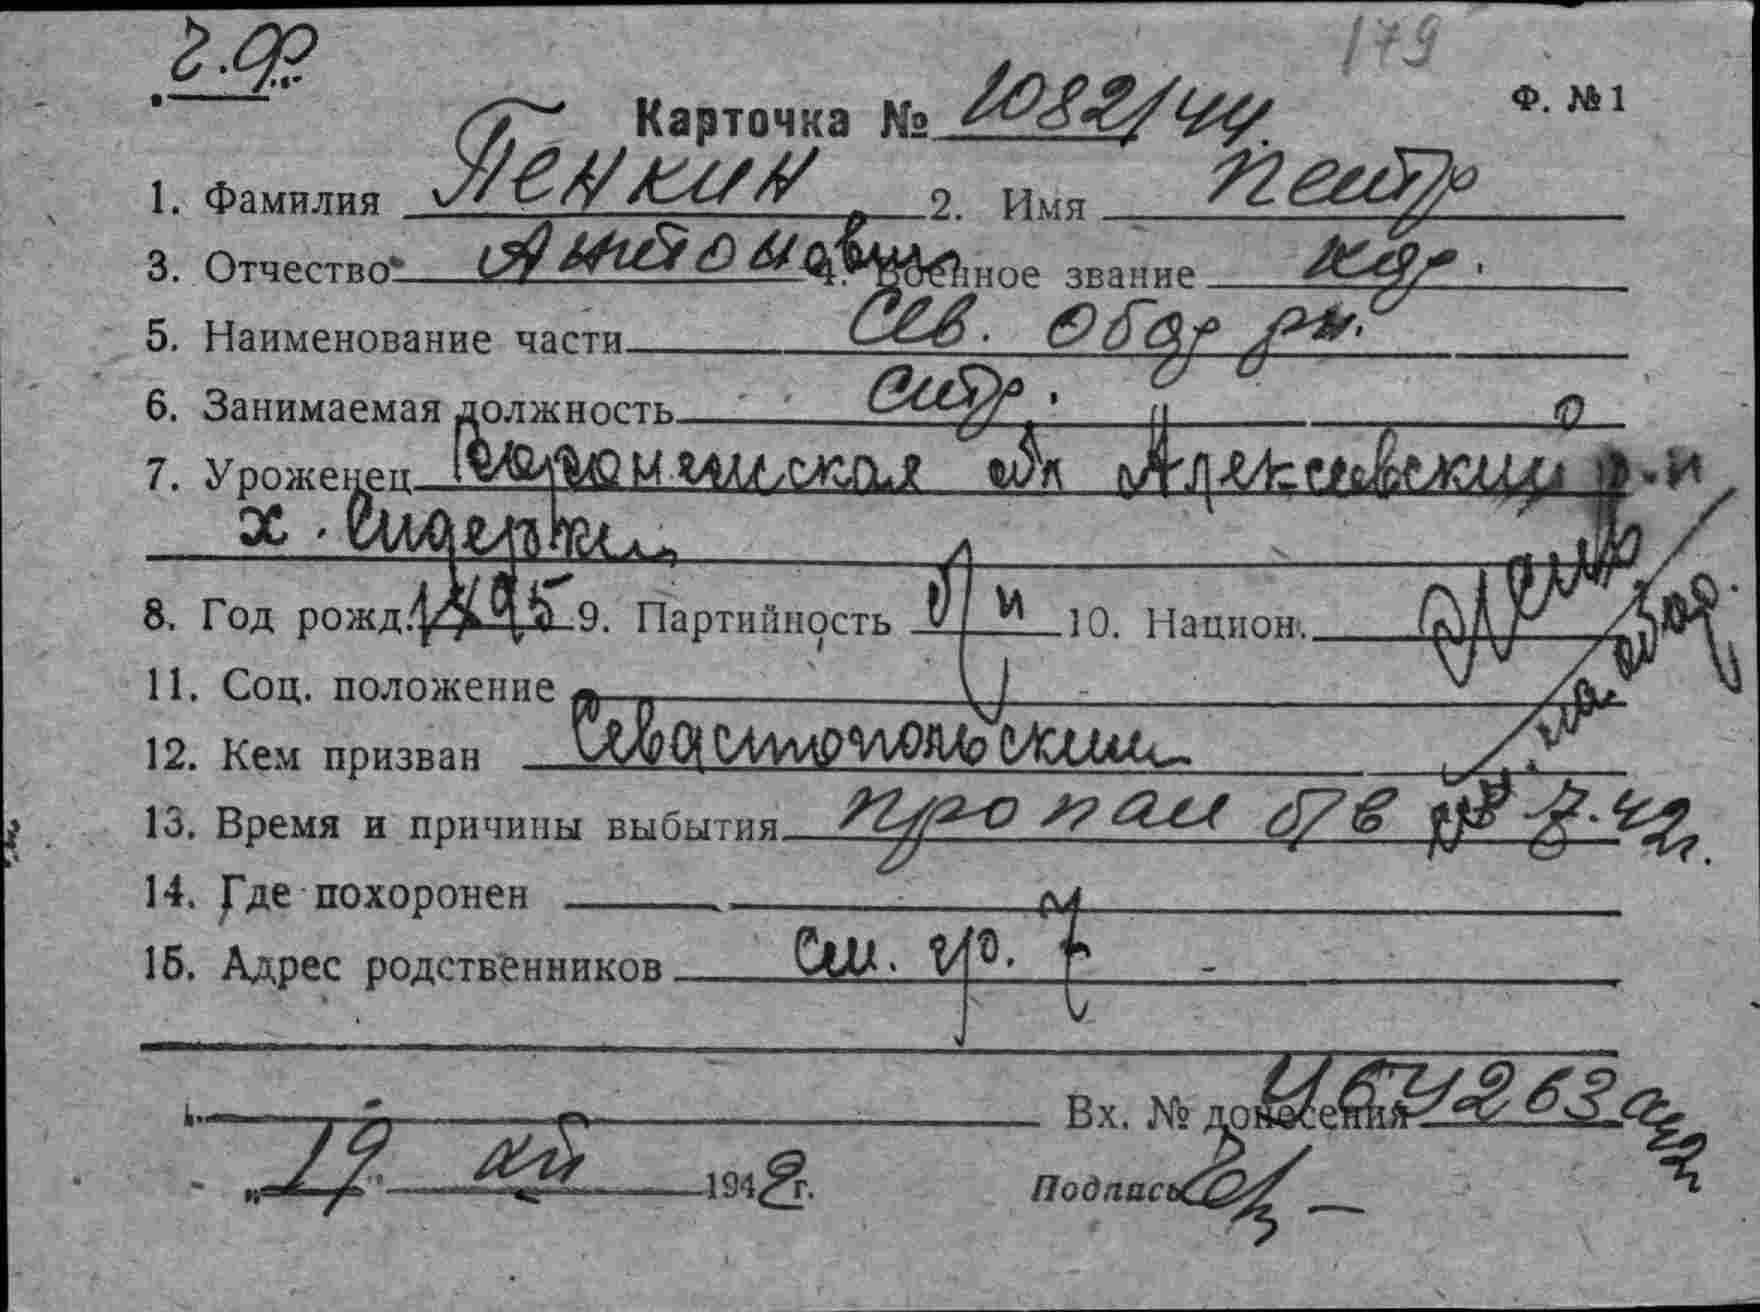 ч.ф.
179
Карточка № 1082/44. Ф. №1
1. Фамилия Пенкин 2. Имя Петр
3. Отчество Антонович 4. Военное звание кр.
5. Наименование части Сев. Обор рн.
6. Занимаемая должность стр.
7. Уроженец обл Алексеевский р-н
х.
8. Год рожд. 1895 9. Партийность 10. Национ.
11. Соц. положение
12. Кем призван Севастопольским
13. Время и причины выбытия пропал б/в 7.42г.
14. Где похоронен
15. Адрес родственников см. гр. 7
Вх. № донесения
„19" 194 г. Подпись